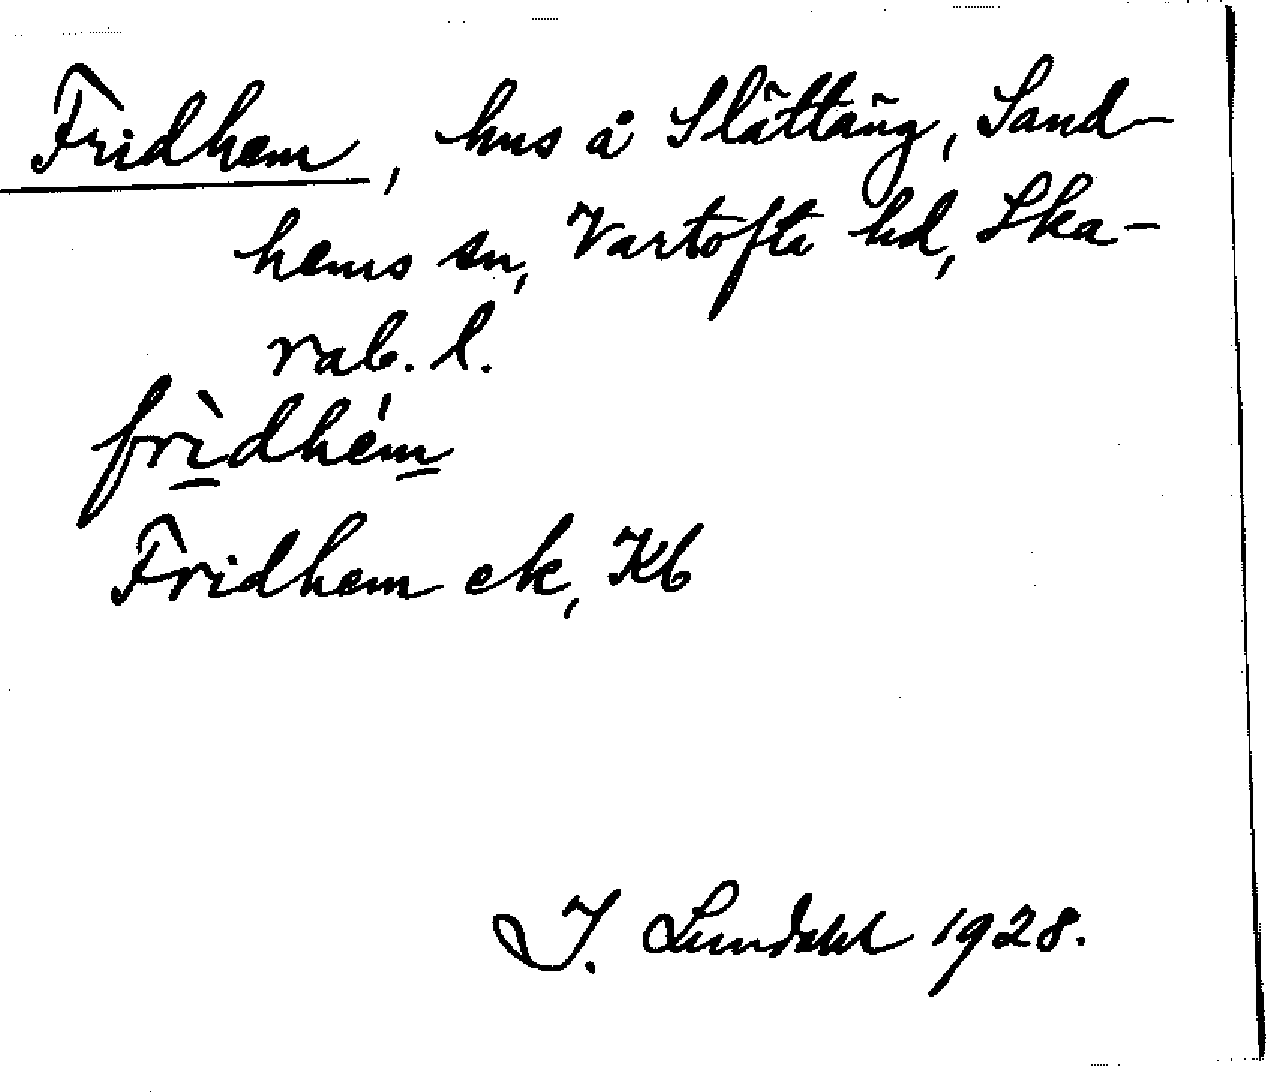 Fridhem, hus å Slättäng, Sand-
hems sn, Vartofta hd, Ska-
rab. l.
frì̲dhém̲
Fridhem ek, Kb
I. Lundahl 1928.